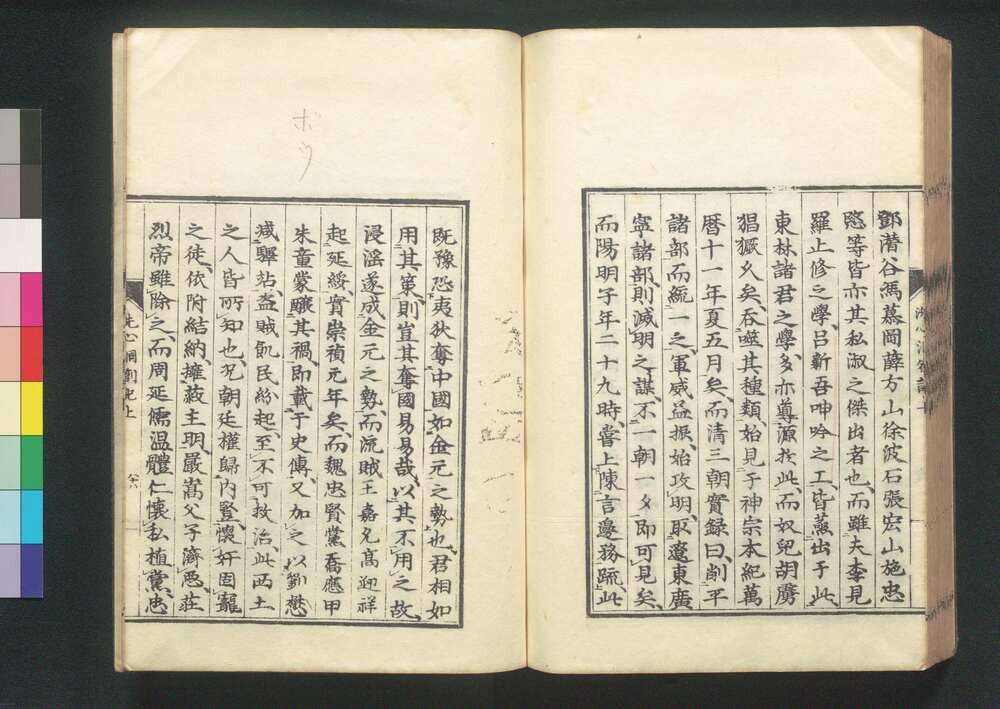 鄧潛谷馮慕岡薛方山徐波石張宏山施忠
愍等皆亦其私淑之傑出者也而雖夫李見
羅止修之學呂新吾呻吟之工皆蓋出于此
東林諸君之學多亦尊源於此而奴兒胡虜
猖獗久矣吞噬其種類始見于神宗本紀萬
曆十一年夏五月矣而清三朝實録曰削平
諸部而統一之軍威益振始攻明取遼東廣
寧諸部則滅明之謀不一朝一夕即可見矣
而陽明子年二十九時嘗上陳言邊務疏此
既豫恐夷狄奪中國如金元之勢也君相如
用其策則豈其奪國易易哉以其不用之故
浸滛遂成金元之勢而流賊王嘉允高迎祥
起延綏實崇禎元年矣而魏忠賢黨喬應甲
朱童蒙釀其禍即載于史傳又加之以劉懋
減驛站盗賊飢民紛起至不可救治此兩土
之人皆所知也況朝廷權歸内豎懷奸固寵
之徒依附結納擁蔽主明嚴嵩父子濟悪莊
烈帝雖除之而周延儒温體仁懷私植黨忠
洗心洞劄記上
ボウ